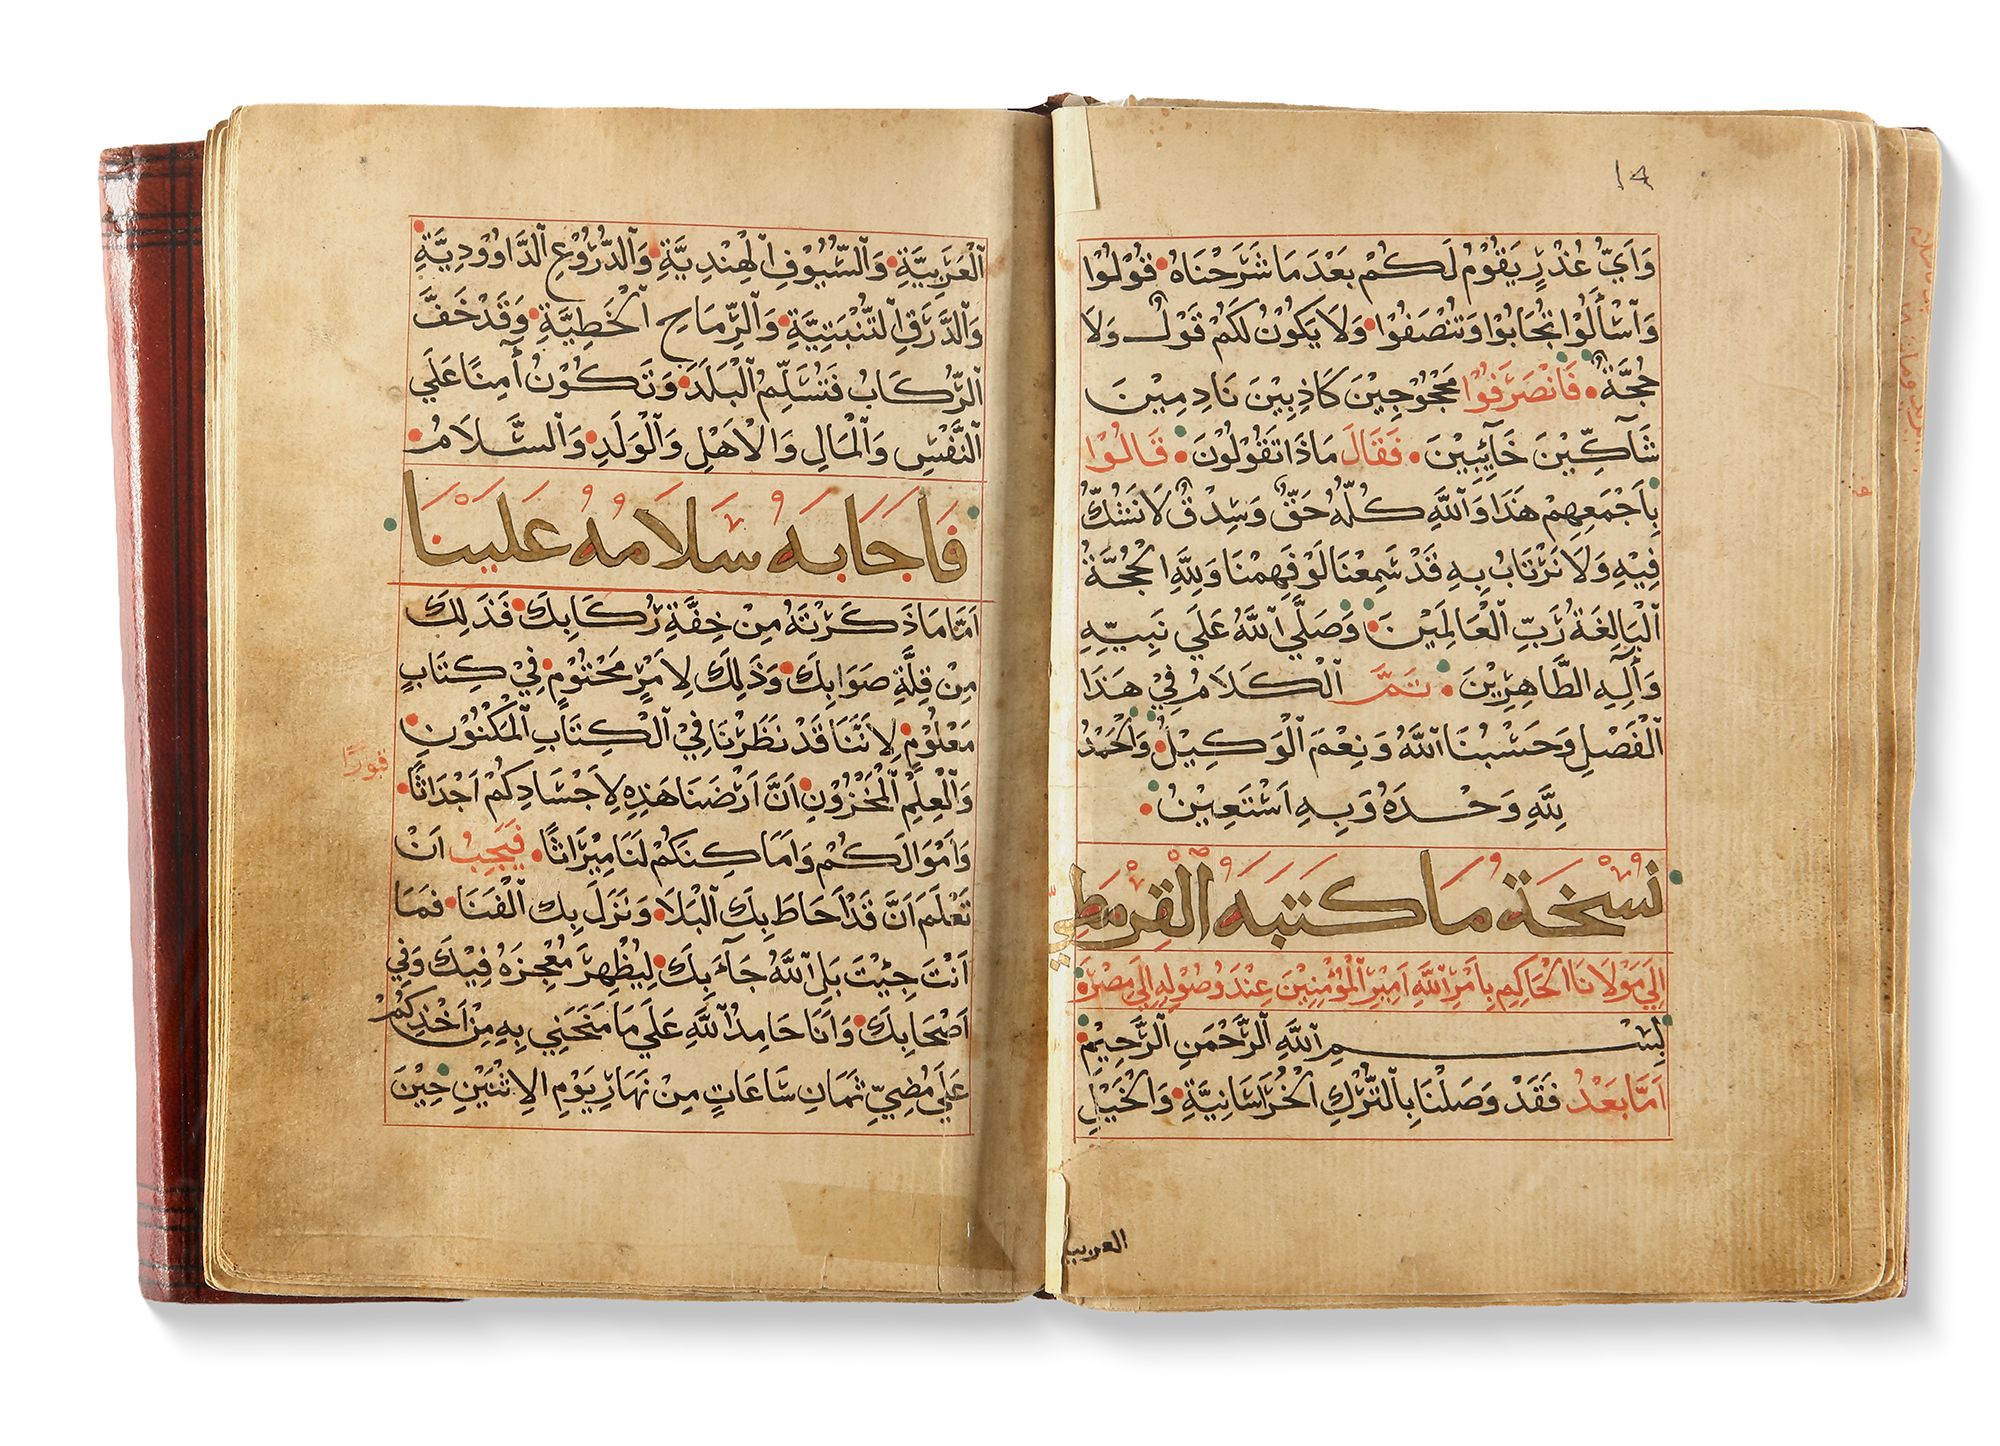 ١٣
وَأَيُّ عُذْرٍ يَقُومُ لَكُمْ بَعْدَ مَا شَرَحْنَاهُ قُوْلُوْا
وَاسْأَلُوْا تُجَابُوْا وَتُنْصَفُوْا وَلَا يَكُوْنُ لَكُمْ قَوْلٌ وَلَا
حُجَّةٌ فَانْصَرَفُوْا مَحْجُوْجِيْنَ كَاذِبِيْنَ نَادِمِيْنَ
شَآكِّيْنَ خَآئِبِيْنَ فَقَالَ مَاذَا تَقُوْلُوْنَ قَالُوْا
بِأَجْمَعِهِمْ هَذَا وَاللَّهِ كُلُّهُ حَقٌّ وَسِدْقٌ لَا نَشُكُّ
فِيْهِ وَلَا نَرْتَابُ بِهِ قَدْ سَمِعْنَا لَوْ فَهِمْنَا وَلِلَّهِ الْحُجَّةُ
الْبَالِغَةُ رَبِّ الْعَالَمِيْنَ وَصَلَّى اللَّهُ عَلَى نَبِيِّهِ
وَآلِهِ الطَّاهِرِيْنَ تَمَّ الْكَلَامُ فِيْ هَذَا
الْفَصْلِ وَحَسْبُنَا اللَّهُ وَنِعْمَ الْوَكِيْلُ وَالْحَمْدُ
لِلَّهِ وَحْدَهُ وَبِهِ اَسْتَعِيْنُ
نُسْخَةُ مَا كَتَبَهُ الْقِرْمِطِيُّ
إِلَى مَوْلَانَا الْحَاكِمِ بِأَمْرِ اللَّهِ أَمِيْرِ الْمُؤْمِنِيْنَ عِنْدَ وُصُوْلِهِ إِلَى مِصْرَ
بِسْمِ اللَّهِ الرَّحْمَنِ الرَّحِيْمِ
أَمَّا بَعْدُ فَقَدْ وَصَلْنَا بِالتُّرْكِ الْخُرَاسَانِيَّةِ وَالْخَيْلِ
العربية
الْعَرَبِيَّةِ وَالسُّيُوْفِ الْهِنْدِيَّةِ وَالدُّرُوْعِ الدَّاوُوْدِيَّةِ
وَالدَّرَقِ التُّنْبَتِيَّةِ وَالرِّمَاحِ الْخَطِّيَّةِ وَقَدْ خَفَّ
الرِّكَابُ فَتُسَلِّمُ الْبَلَدَ وَتَكُوْنُ آمِنًا عَلَى
النَّفْسِ وَالْمَالِ وَالْأَهْلِ وَالْوَلَدِ وَالسَّلَامُ
فَأَجَابَهُ سَلَامُهُ عَلَيْنَا
أَمَّا مَا ذَكَرْتَهُ مِنْ خِفَّةِ رِكَابِكَ فَذَلِكَ
مِنْ قِلَّةِ صَوَابِكَ وَذَلِكَ لِأَمْرٍ مَحْتُوْمٍ فِيْ كِتَابٍ
مَعْلُوْمٍ لِأَنَّنَا قَدْ نَظَرْنَا فِيْ الْكِتَابِ الْمَكْنُوْنِ
وَالْعِلْمِ الْمَخْزُوْنِ أَنَّ أَرْضَنَا هَذِهِ لِأَجْسَادِكُمْ أَجْدَاثًا
قبورًا
وَأَمْوَالَكُمْ وَأَمَاكِنَكُمْ لَنَا مِيْرَاثًا فَيَجِبُ أَنْ
تَعْلَمَ أَنَّ قَدْ أَحَاطَ بِكَ الْبَلَا وَنَزَلَ بِكَ الْفَنَا فَمَا
أَنْتَ جِيْتَ بَلِ اللَّهُ جَآءَ بِكَ لِيُظْهِرَ مُعْجِزَهُ فِيْكَ وَفِيْ
أَصْحَابِكَ وَأَنَا حَامِدُ اللَّهِ عَلَى مَا مَنَحَنِي بِهِ مِنْ أَخْذِكُمْ
عَلَى مُضِيِّ ثَمَانِ سَاعَاتٍ مِنْ نَهَارِ يَوْمِ الْاِثْنَيْنِ حِيْنَ